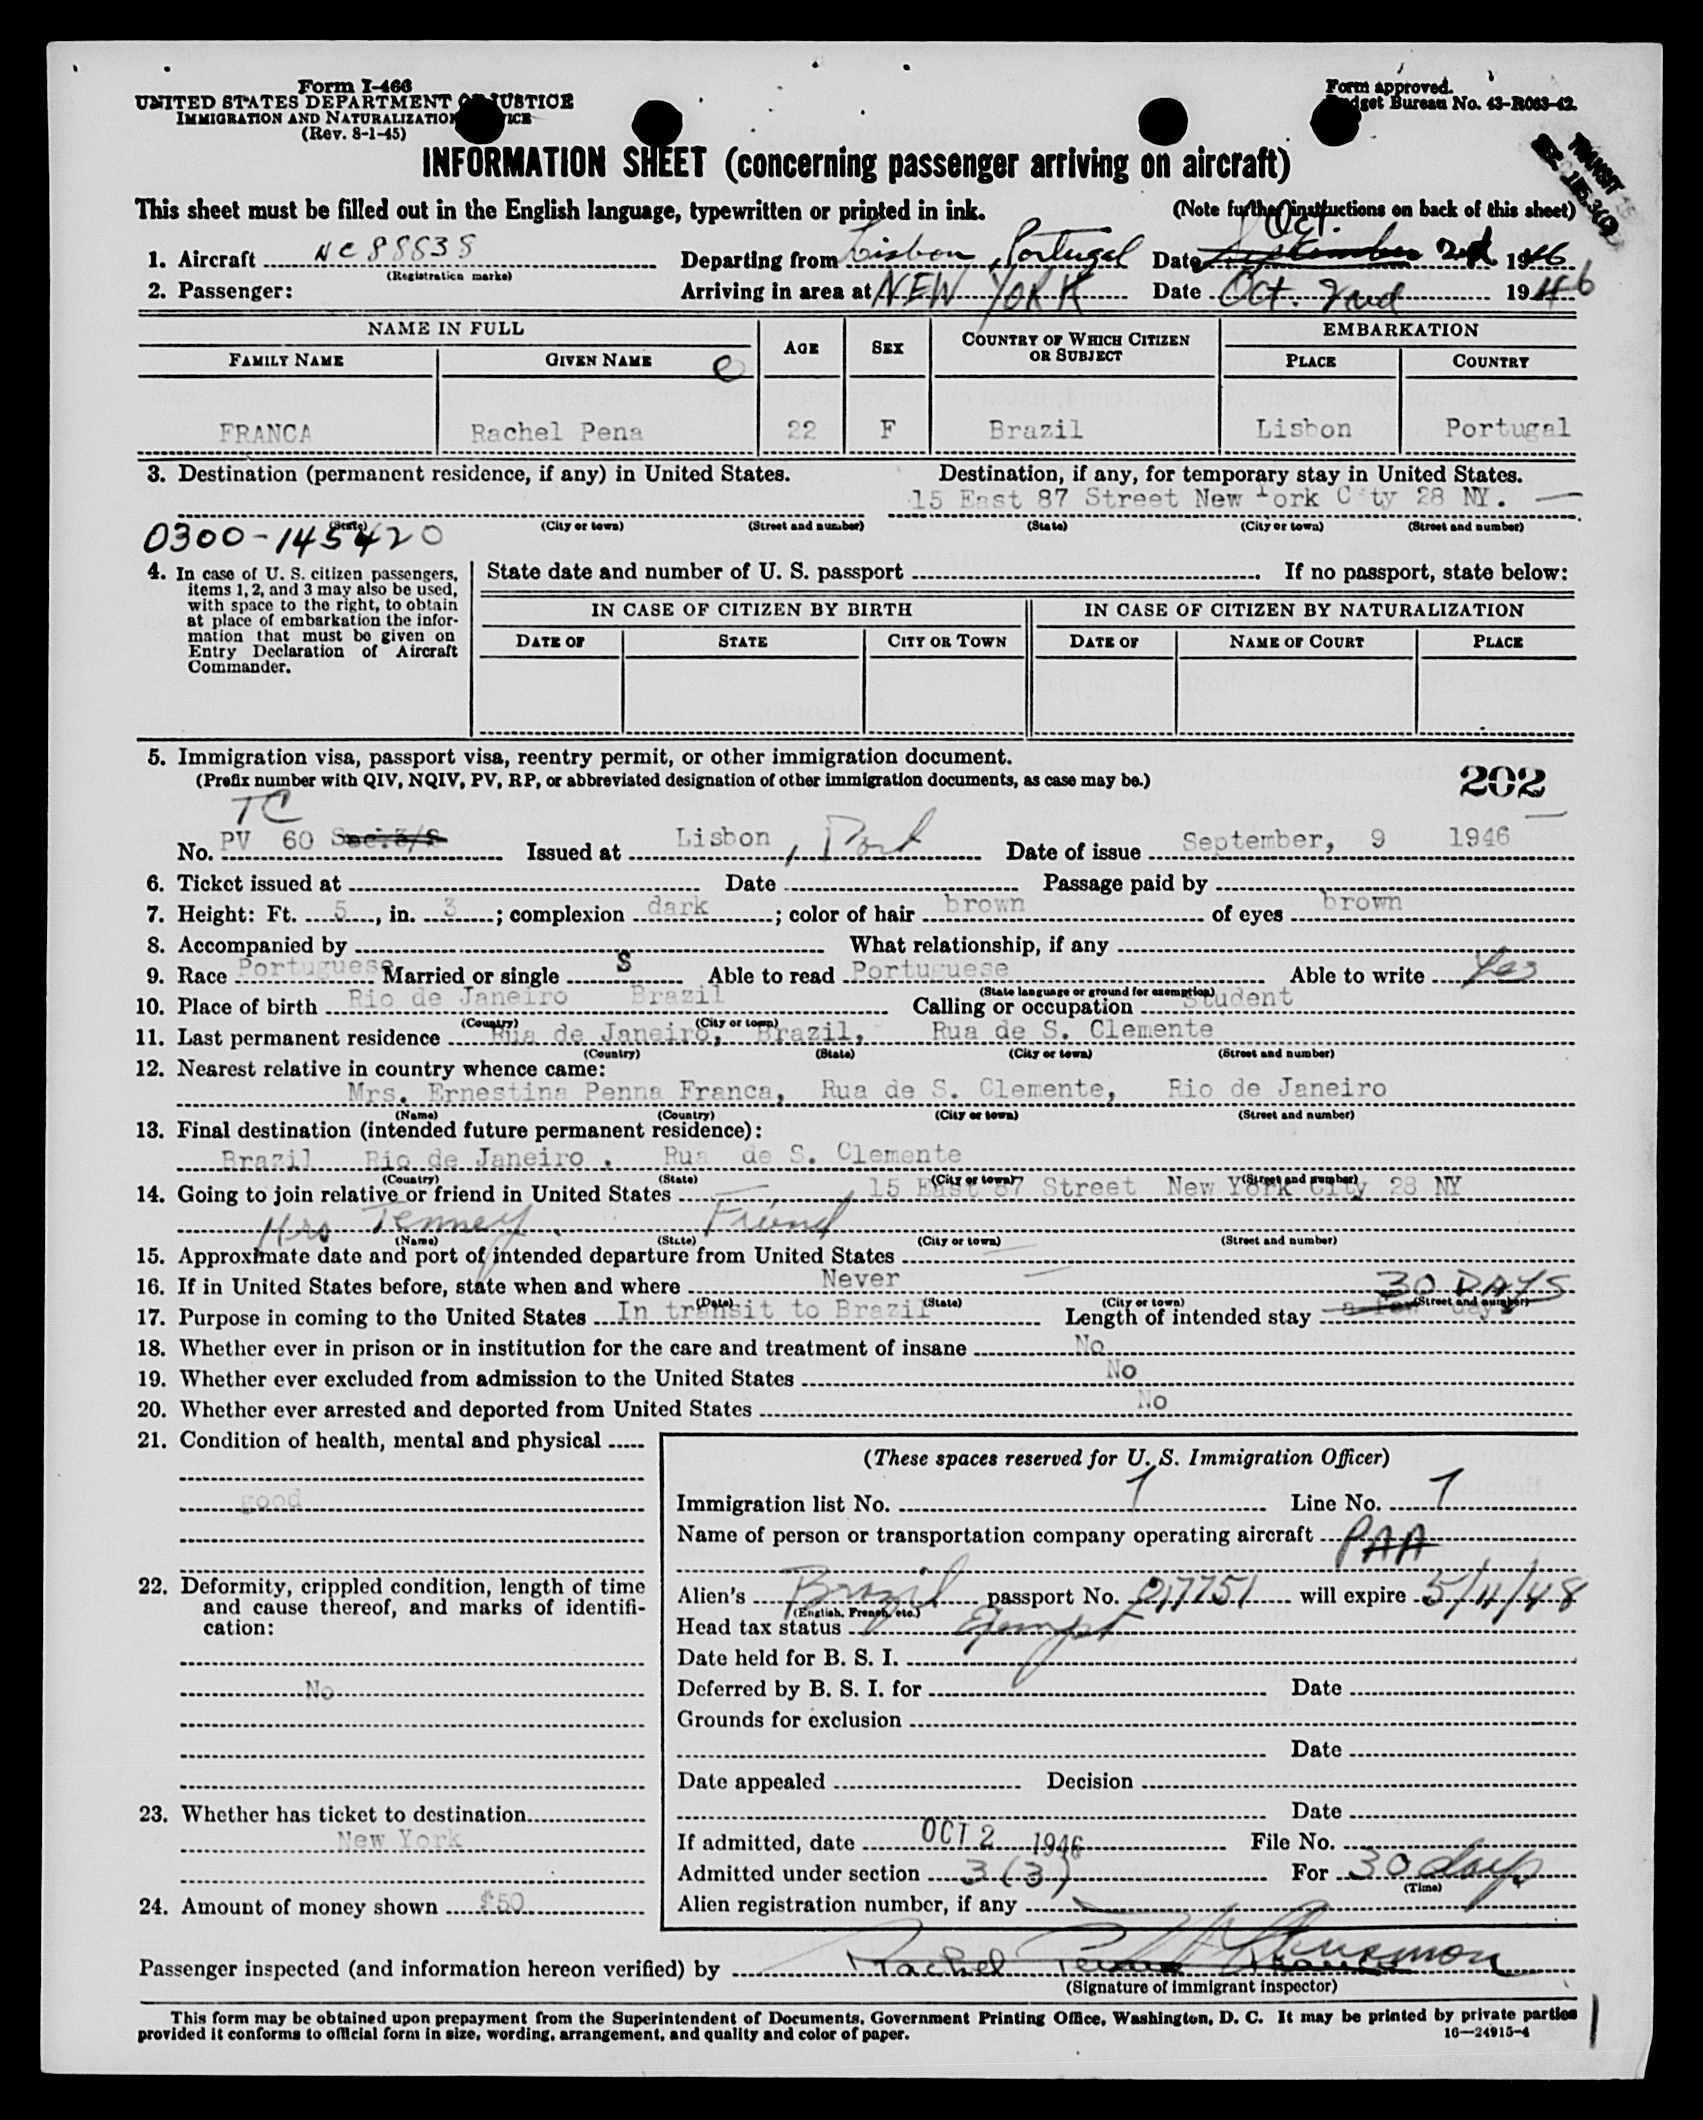 Form I-466
UNITED STATES DEPARTMENT OF JUSTICE
IMMIGRATION AND NATURALIZATION SERVICE
(Rev. 8-1-45)
Form approved.
Budget Bureau No. 43-R063-42.
TRANSIT
INFORMATION SHEET (concerning passenger arriving on aircraft)
This sheet must be filled out in the English language, typewritten or printed in ink. (Note further instructions on back of this sheet)
Oct.
1. Aircraft NC 88838 Departing from Lisbon, Portugal Date September 2nd 1946
(Registration marks)
2. Passenger: Arriving in area at NEW YORK Date Oct. 2nd 1946
NAME IN FULL AGE SEX COUNTRY OF WHICH CITIZEN OR SUBJECT EMBARKATION
FAMILY NAME GIVEN NAME PLACE COUNTRY
FRANCA Rachel Pena 22 F Brazil Lisbon Portugal
3. Destination (permanent residence, if any) in United States. Destination, if any, for temporary stay in United States.
15 East 87 Street New York City 28 NY.
(State) (City or town) (Street and number) (State) (City or town) (Street and number)
0300-145420
4. In case of U. S. citizen passengers, items 1, 2, and 3 may also be used, with space to the right, to obtain at place of embarkation the information that must be given on Entry Declaration of Aircraft Commander.
State date and number of U. S. passport If no passport, state below:
IN CASE OF CITIZEN BY BIRTH IN CASE OF CITIZEN BY NATURALIZATION
DATE OF STATE CITY OR TOWN DATE OF NAME OF COURT PLACE
5. Immigration visa, passport visa, reentry permit, or other immigration document.
(Prefix number with QIV, NQIV, PV, RP, or abbreviated designation of other immigration documents, as case may be.)
202
TC
No. PV 60 Issued at Lisbon, Port Date of issue September, 9 1946
6. Ticket issued at Date Passage paid by
7. Height: Ft. 5, in. 3; complexion dark; color of hair brown of eyes brown
8. Accompanied by What relationship, if any
9. Race Portuguese Married or single S Able to read Portuguese Able to write Yes
(State language or ground for exemption)
10. Place of birth Rio de Janeiro Brazil Calling or occupation Student
(Country) (City or town)
11. Last permanent residence Rua de Janeiro, Brazil, Rua de S. Clemente
(Country) (State) (City or town) (Street and number)
12. Nearest relative in country whence came:
Mrs. Ernestina Penna Franca, Rua de S. Clemente, Rio de Janeiro
(Name) (Country) (City or town) (Street and number)
13. Final destination (intended future permanent residence):
Brazil Rio de Janeiro. Rua de S. Clemente
(Country) (State) (City or town) (Street and number)
14. Going to join relative or friend in United States 15 East 87 Street New York City 28 NY
Mrs Tenney Friend
(Name) (State) (City or town) (Street and number)
15. Approximate date and port of intended departure from United States
16. If in United States before, state when and where Never
30 DAYS
(Date) (State) (City or town) (Street and number)
17. Purpose in coming to the United States In transit to Brazil Length of intended stay a few days
18. Whether ever in prison or in institution for the care and treatment of insane No
19. Whether ever excluded from admission to the United States No
20. Whether ever arrested and deported from United States No
21. Condition of health, mental and physical
good
22. Deformity, crippled condition, length of time and cause thereof, and marks of identification:
No
23. Whether has ticket to destination
New York
24. Amount of money shown $50
(These spaces reserved for U. S. Immigration Officer)
Immigration list No. 1 Line No. 1
Name of person or transportation company operating aircraft PAA
Alien's Brazil passport No. 017751 will expire 5/4/48
(English, French, etc.)
Head tax status Exempt
Date held for B. S. I.
Deferred by B. S. I. for Date
Grounds for exclusion
Date
Date appealed Decision
Date
If admitted, date OCT 2 1946 File No.
Admitted under section 3(3) For 30 days
(Time)
Alien registration number, if any
Passenger inspected (and information hereon verified) by Rachel Penna Franca
(Signature of immigrant inspector)
This form may be obtained upon prepayment from the Superintendent of Documents, Government Printing Office, Washington, D. C. It may be printed by private parties
provided it conforms to official form in size, wording, arrangement, and quality and color of paper. 16—24915-4